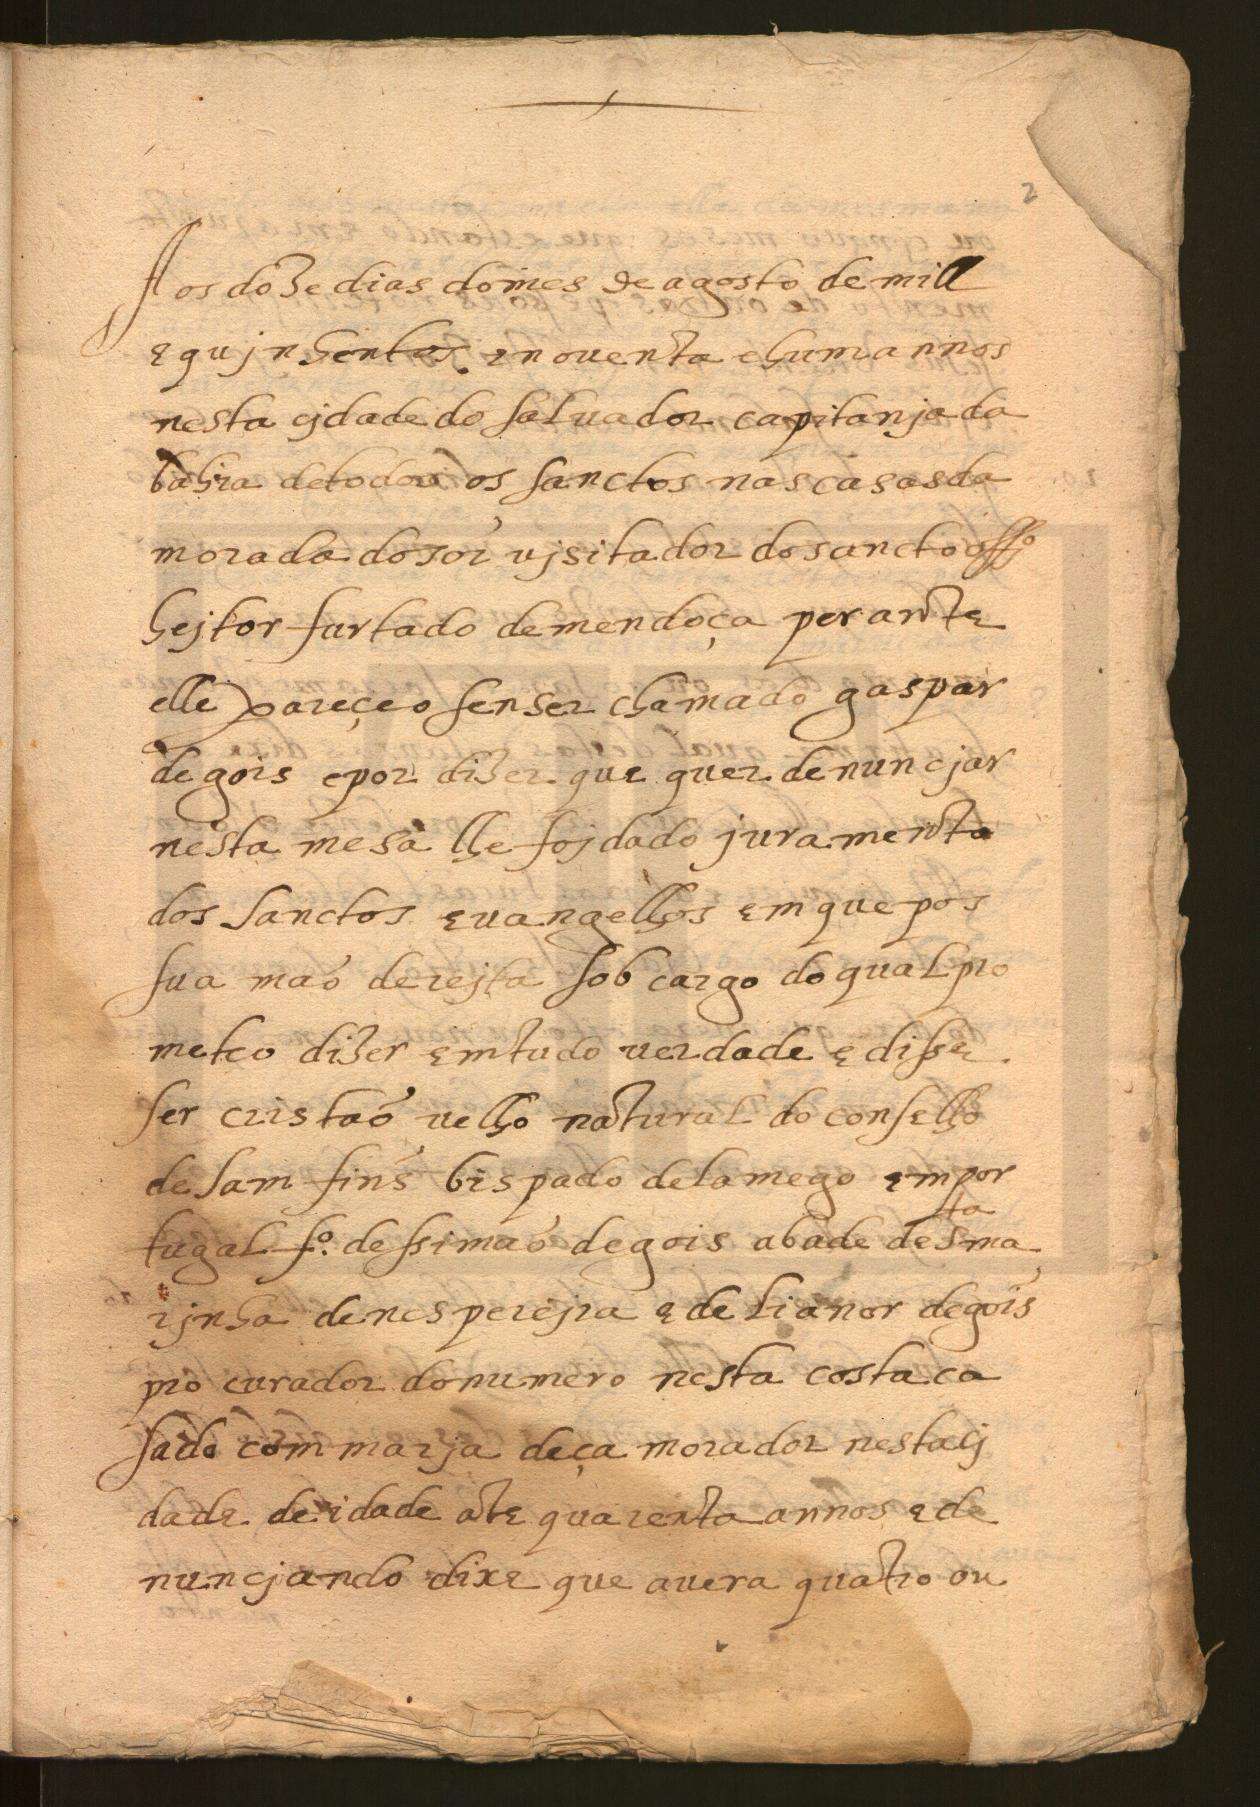 2
Aos doze dias do mes de agosto de mill
e qujnhentos. e noventa e hum annos
nesta cjdade do salvador capitanja da
bahia de todos os sanctos nas casas da
morada do sor vjsitador do sancto offo
hejtor furtado de mendoça perante
elle pareçeo sen ser chamado gaspar
de gois e por dizer que quer denuncjar
nesta mesa lhe foj dado juramento
dos sanctos evangelhos em que pos
sua maõ derejta sob cargo do qual pro
meteo dizer em tudo verdade e disse.
ser cristaõ velho natural do conselho
de sam fins bispado de lamego em por
tugal fo. de ssimaõ de gois abade de Sta ma
rjnha de nesperejra e de lianor de gois
procurador do numero nesta costa ca
sado com marja deça morador nesta cj
dade de idade ate quarenta annos e de
nuncjando dixe que avera quatro ou